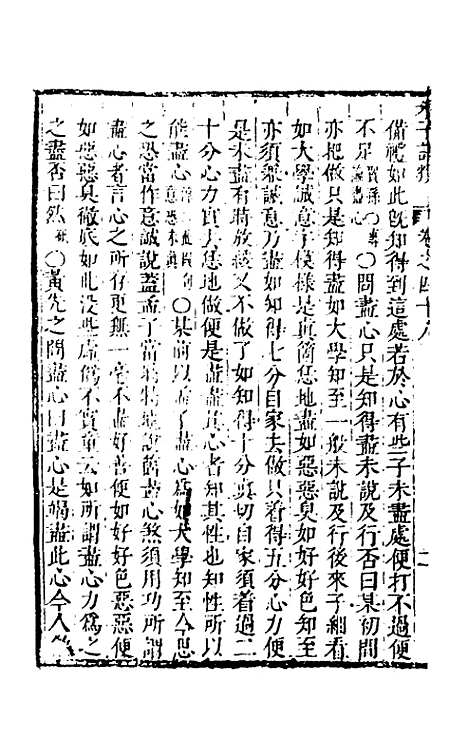 朱子語類
卷之四十八
二
備禮如此旣知得到這處若於心有些子未盡處便打不過便
不足賀孫○專論盡心○問盡心只是知得盡未說及行否曰某初間
亦把做只是知得盡如大學知至一般未說及行後來子細看
如大學誠意字模樣是眞箇恁地盡如惡惡臭如好好色知至
亦須兼誠意乃盡如知得七分自家去做只着得五分心力便
是未盡有時放緩又不做了如知得十分眞切自家須着過二
十分心力實去恁地做便是盡盡其心者知其性也知性所以
能盡心 意恐未眞○某前以孟子盡心爲如大學知至今思
之恐當作意誠說蓋孟子當時特地說箇盡心煞須用功所謂
盡心者言心之所存更無一毫不盡好善便如好好色惡惡便
如惡惡臭徹底如此沒些虛僞不實童云如所謂盡心力爲之
之盡否曰然砥○黃先之問盡心曰盡心是竭盡此心今人